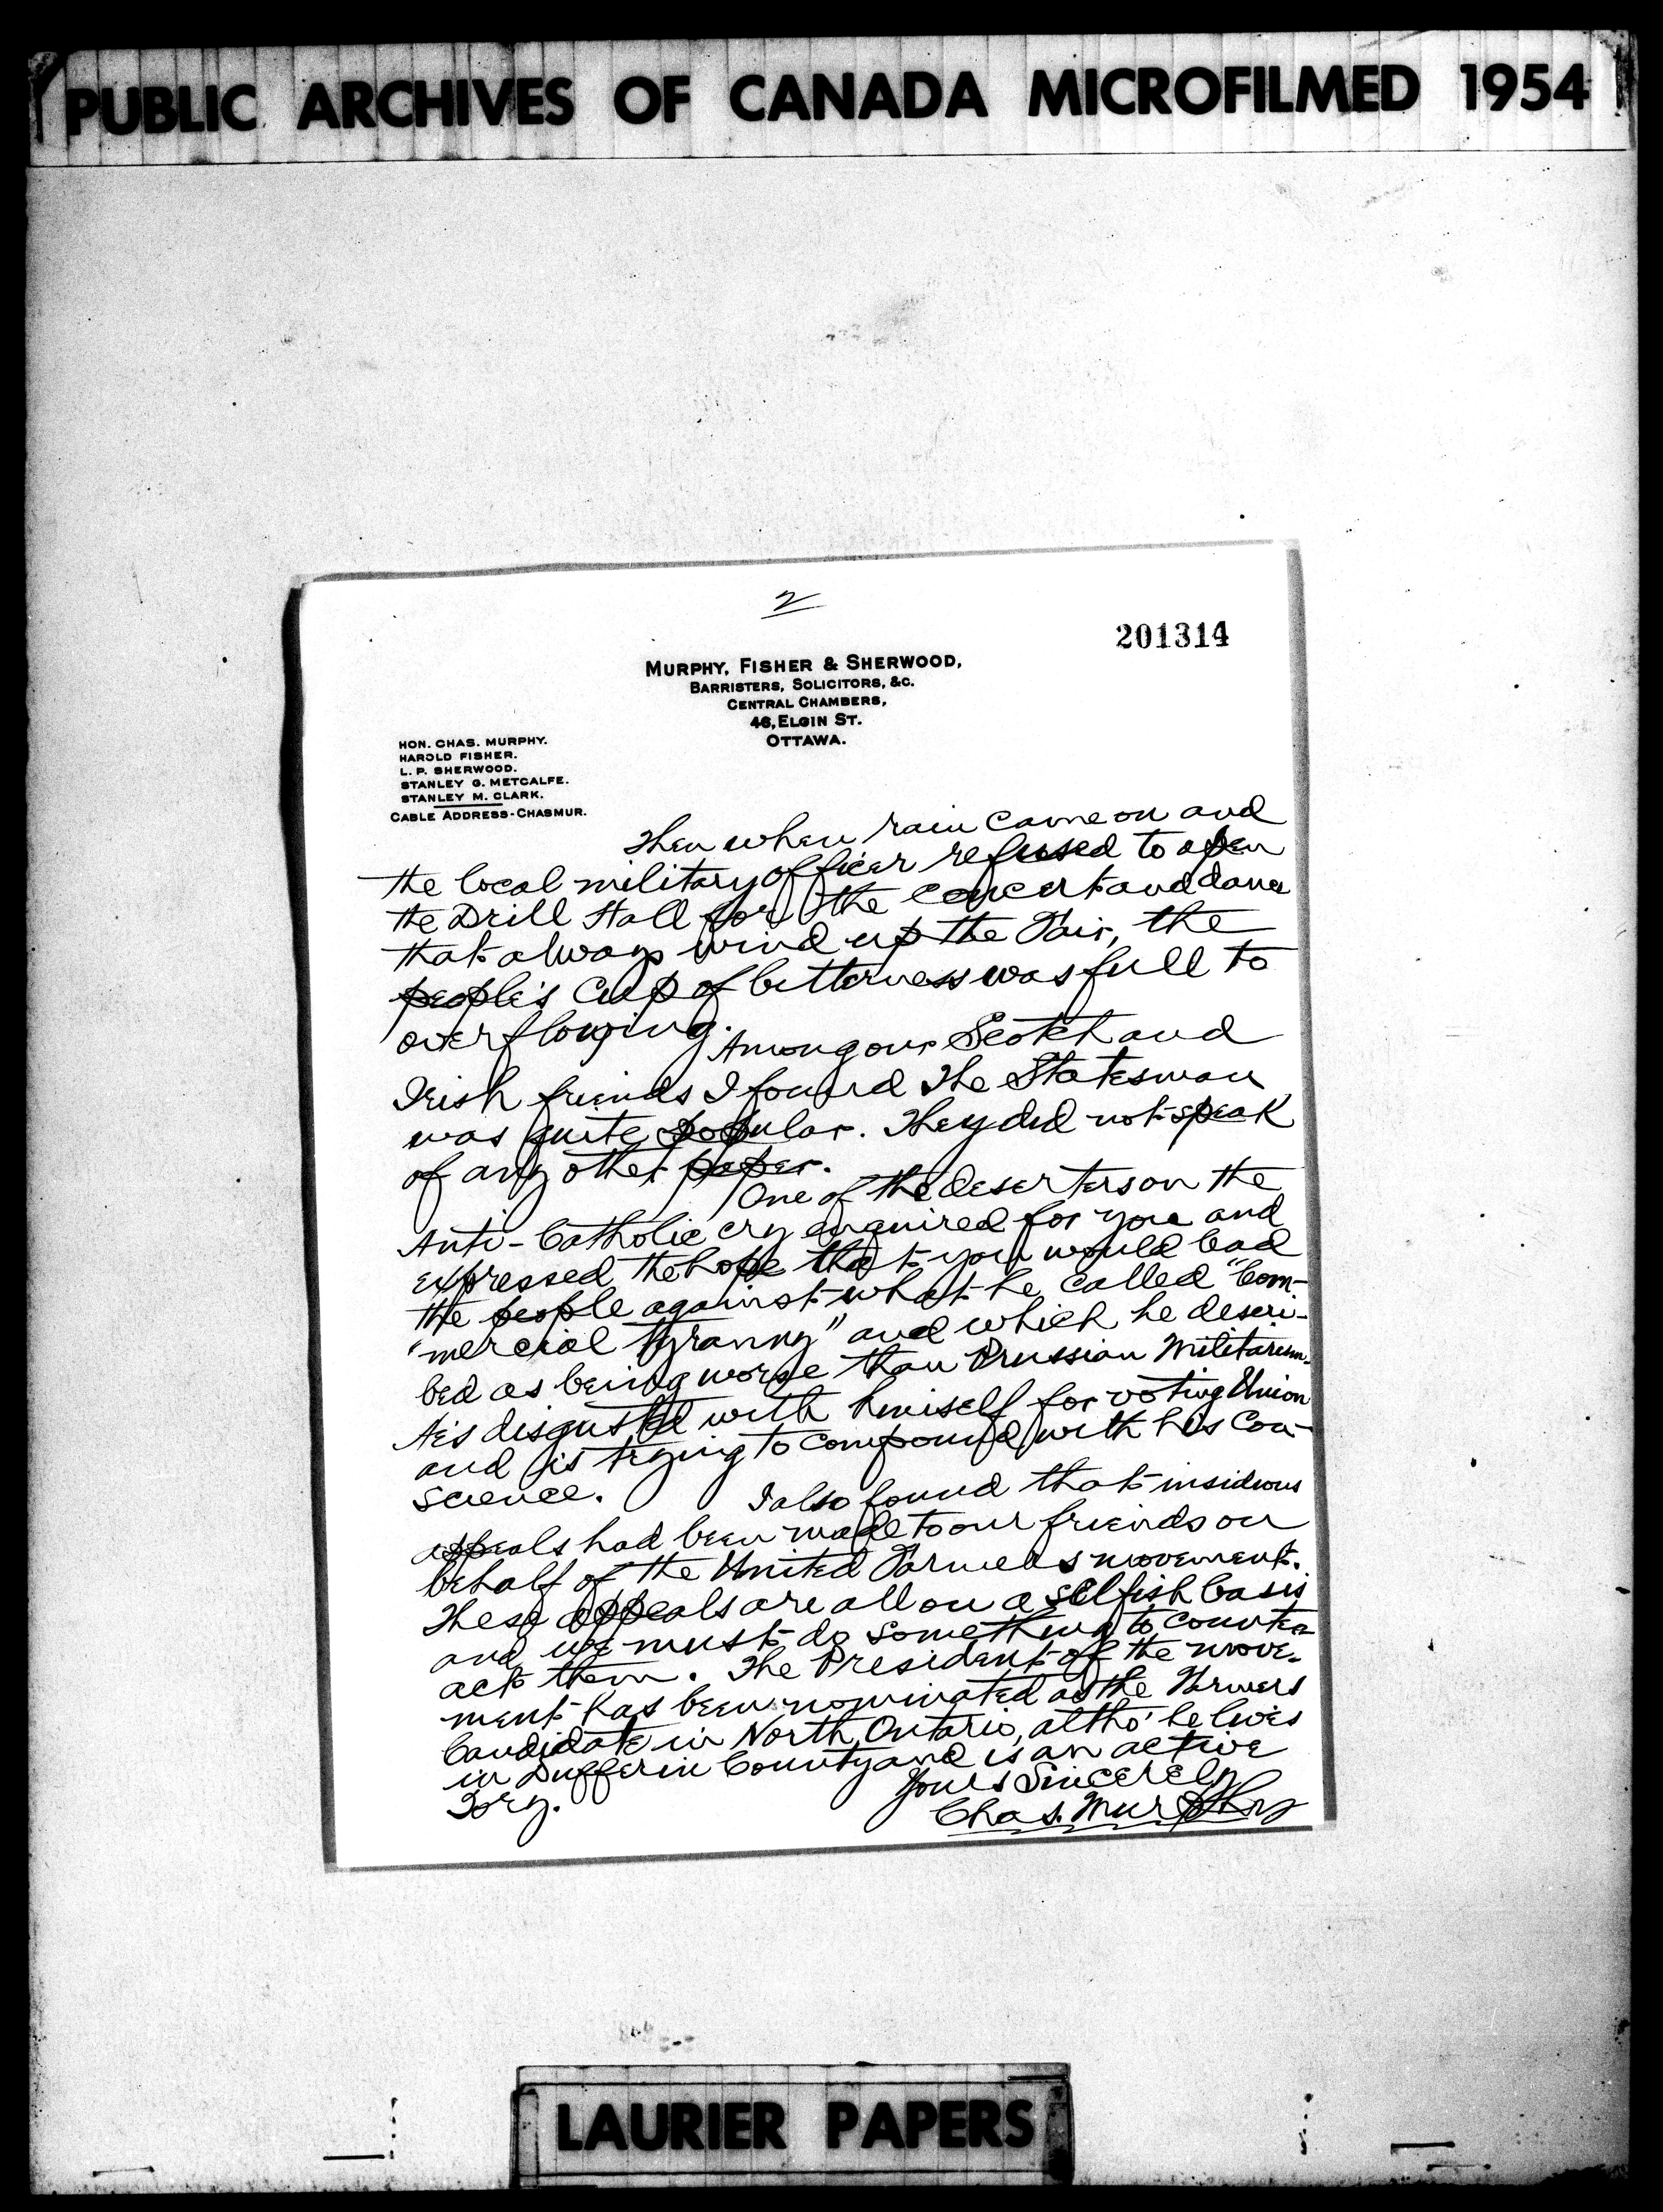 PUBLIC ARCHIVES OF CANADA MICROFILMED 1954
2
201314
MURPHY, FISHER & SHERWOOD,
BARRISTERS, SOLICITORS, &C.
CENTRAL CHAMBERS,
46, ELGIN ST.
OTTAWA.
HON. CHAS. MURPHY.
HAROLD FISHER.
L. P. SHERWOOD.
STANLEY G. METCALFE.
STANLEY M. CLARK.
CABLE ADDRESS-CHASMUR.
Then when rain came on and
the local military officer refused to open
the Drill Hall for the concert and dance
that always wind up the Fair, the
people's cup of bitterness was full to
overflowing.
Among our Scotch and
Irish friends I found The Statesman
was quite popular. They did not speak
of any other paper.
One of the deserters on the
Anti-Catholic cry enquired for you and
expressed the hope that you would lead
the people against what he called "Com-
"mercial tyranny" and which he descri-
bed as being worse than Prussian Militarism.
He's disgusted with himself for voting Union
and is trying to compound with his con-
science.
I also found that insidious
appeals had been made to our friends on
behalf of the United Farmers movement.
These appeals are all on a selfish basis
and we must do something to counter-
act them. The President of the move-
ment has been nominated as the Farmers
Candidate in North Ontario, altho' he lives
in Dufferin County and is an active
Tory.
Yours Sincerely
Chas. Murphy
LAURIER PAPERS